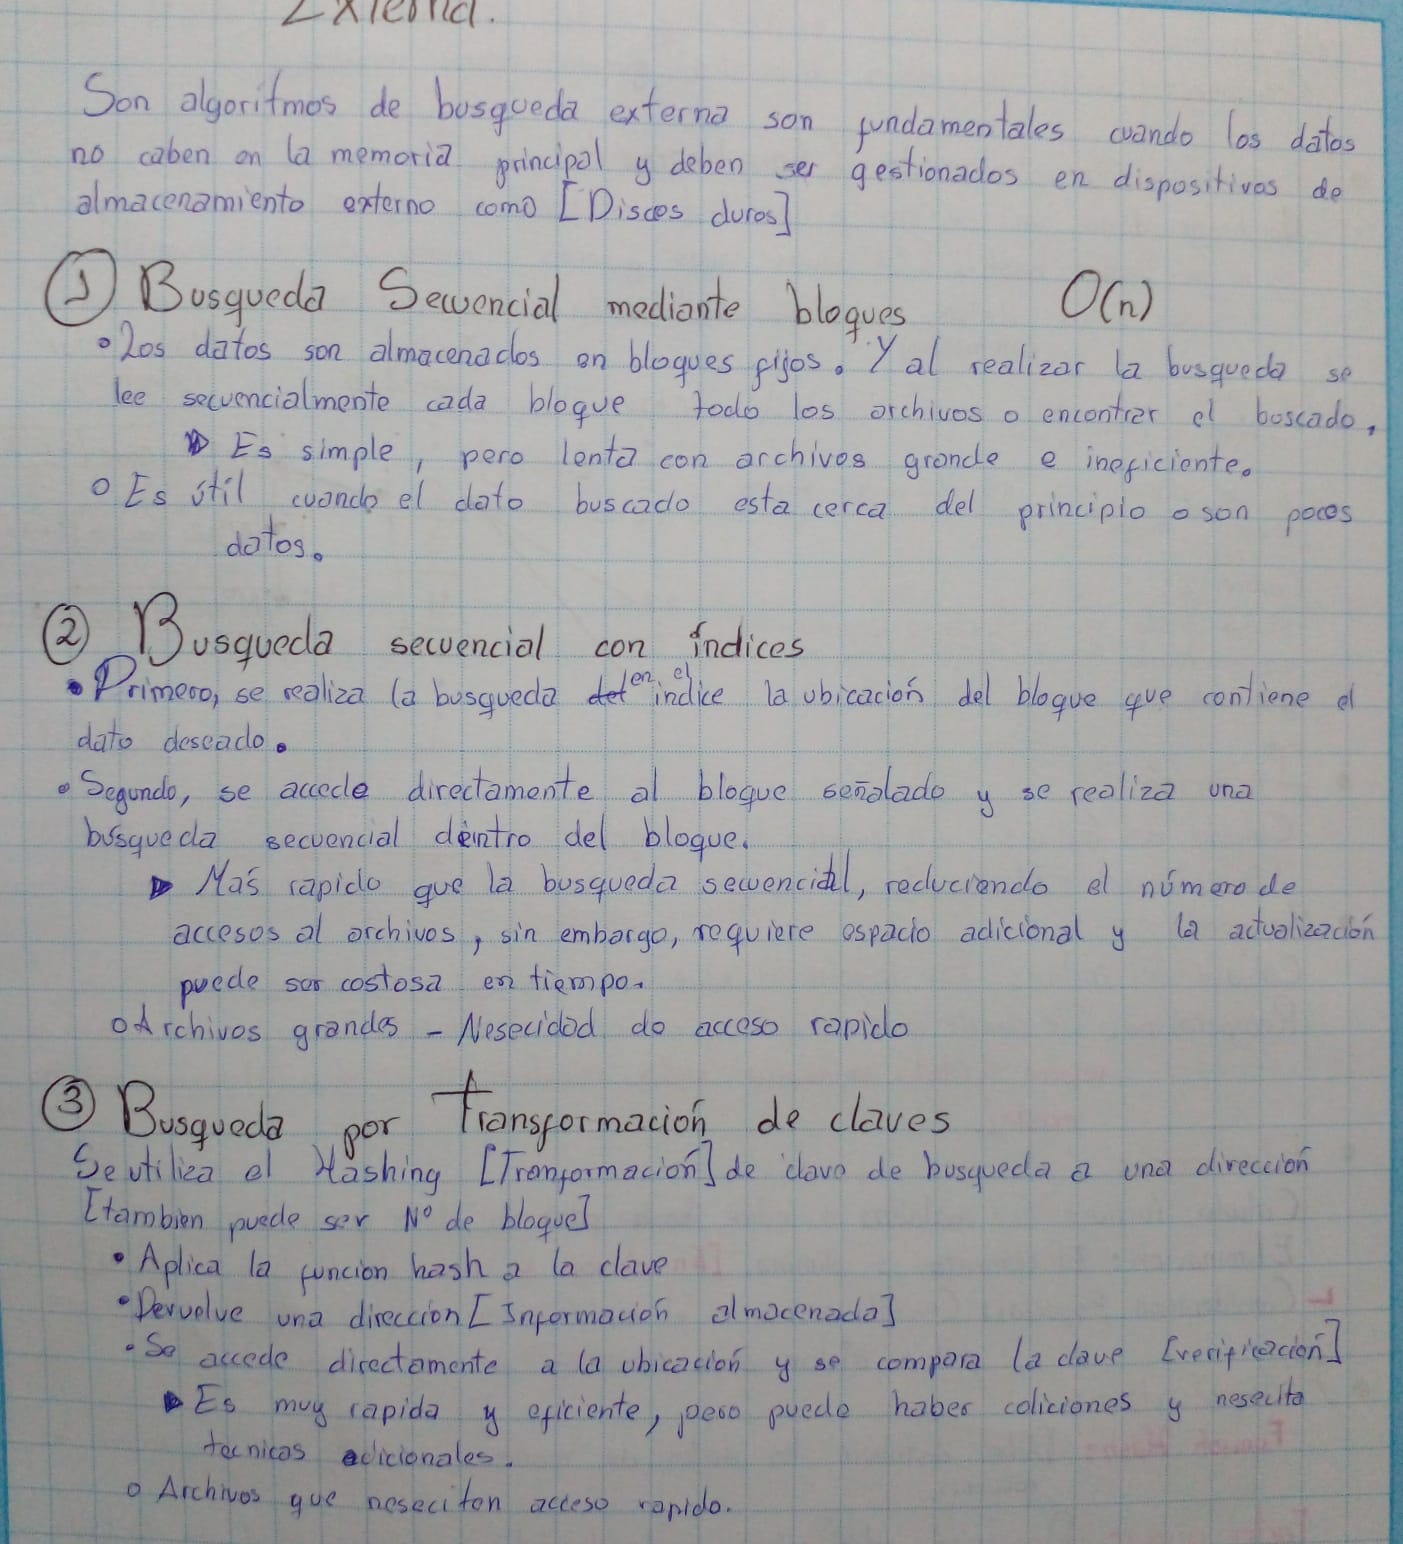 Externa.
Son algoritmos de busqueda externa son fundamentales cuando los datos
no caben en la memoria principal y deben ser gestionados en dispositivos de
almacenamiento externo como [Discos duros]
① Busqueda Secuencial mediante bloques O(n)
• Los datos son almacenados en bloques fijos. Y al realizar la busqueda se
lee secuencialmente cada bloque todo los archivos o encontrar el buscado,
Es simple, pero lenta con archivos grande e ineficiente.
o Es útil cuando el dato buscado esta cerca del principio o son pocos
datos.
② Busqueda secuencial con índices
• Primero, se realiza la busqueda en el indice la ubicación del bloque que contiene el
dato deseado.
• Segundo, se accede directamente al bloque señalado y se realiza una
búsqueda secuencial dentro del bloque.
Más rapido que la busqueda secuencial, reduciendo el número de
accesos al archivos, sin embargo, requiere espacio adicional y la actualización
puede ser costosa en tiempo.
o Archivos grandes - Nesecidad de acceso rapido
③ Busqueda por Transformación de claves
Se utiliza el Hashing [Tranformación] de clave de busqueda a una dirección
[tambien puede ser N° de bloque]
• Aplica la funcion hash a la clave
• Devuelve una dirección [Información almacenada]
• Se accede directamente a la ubicación y se compara la clave [verificación]
Es muy rapida y eficiente, pero puede haber coliciones y nesecita
tecnicas adicionales.
o Archivos que neseciten acceso rapido.